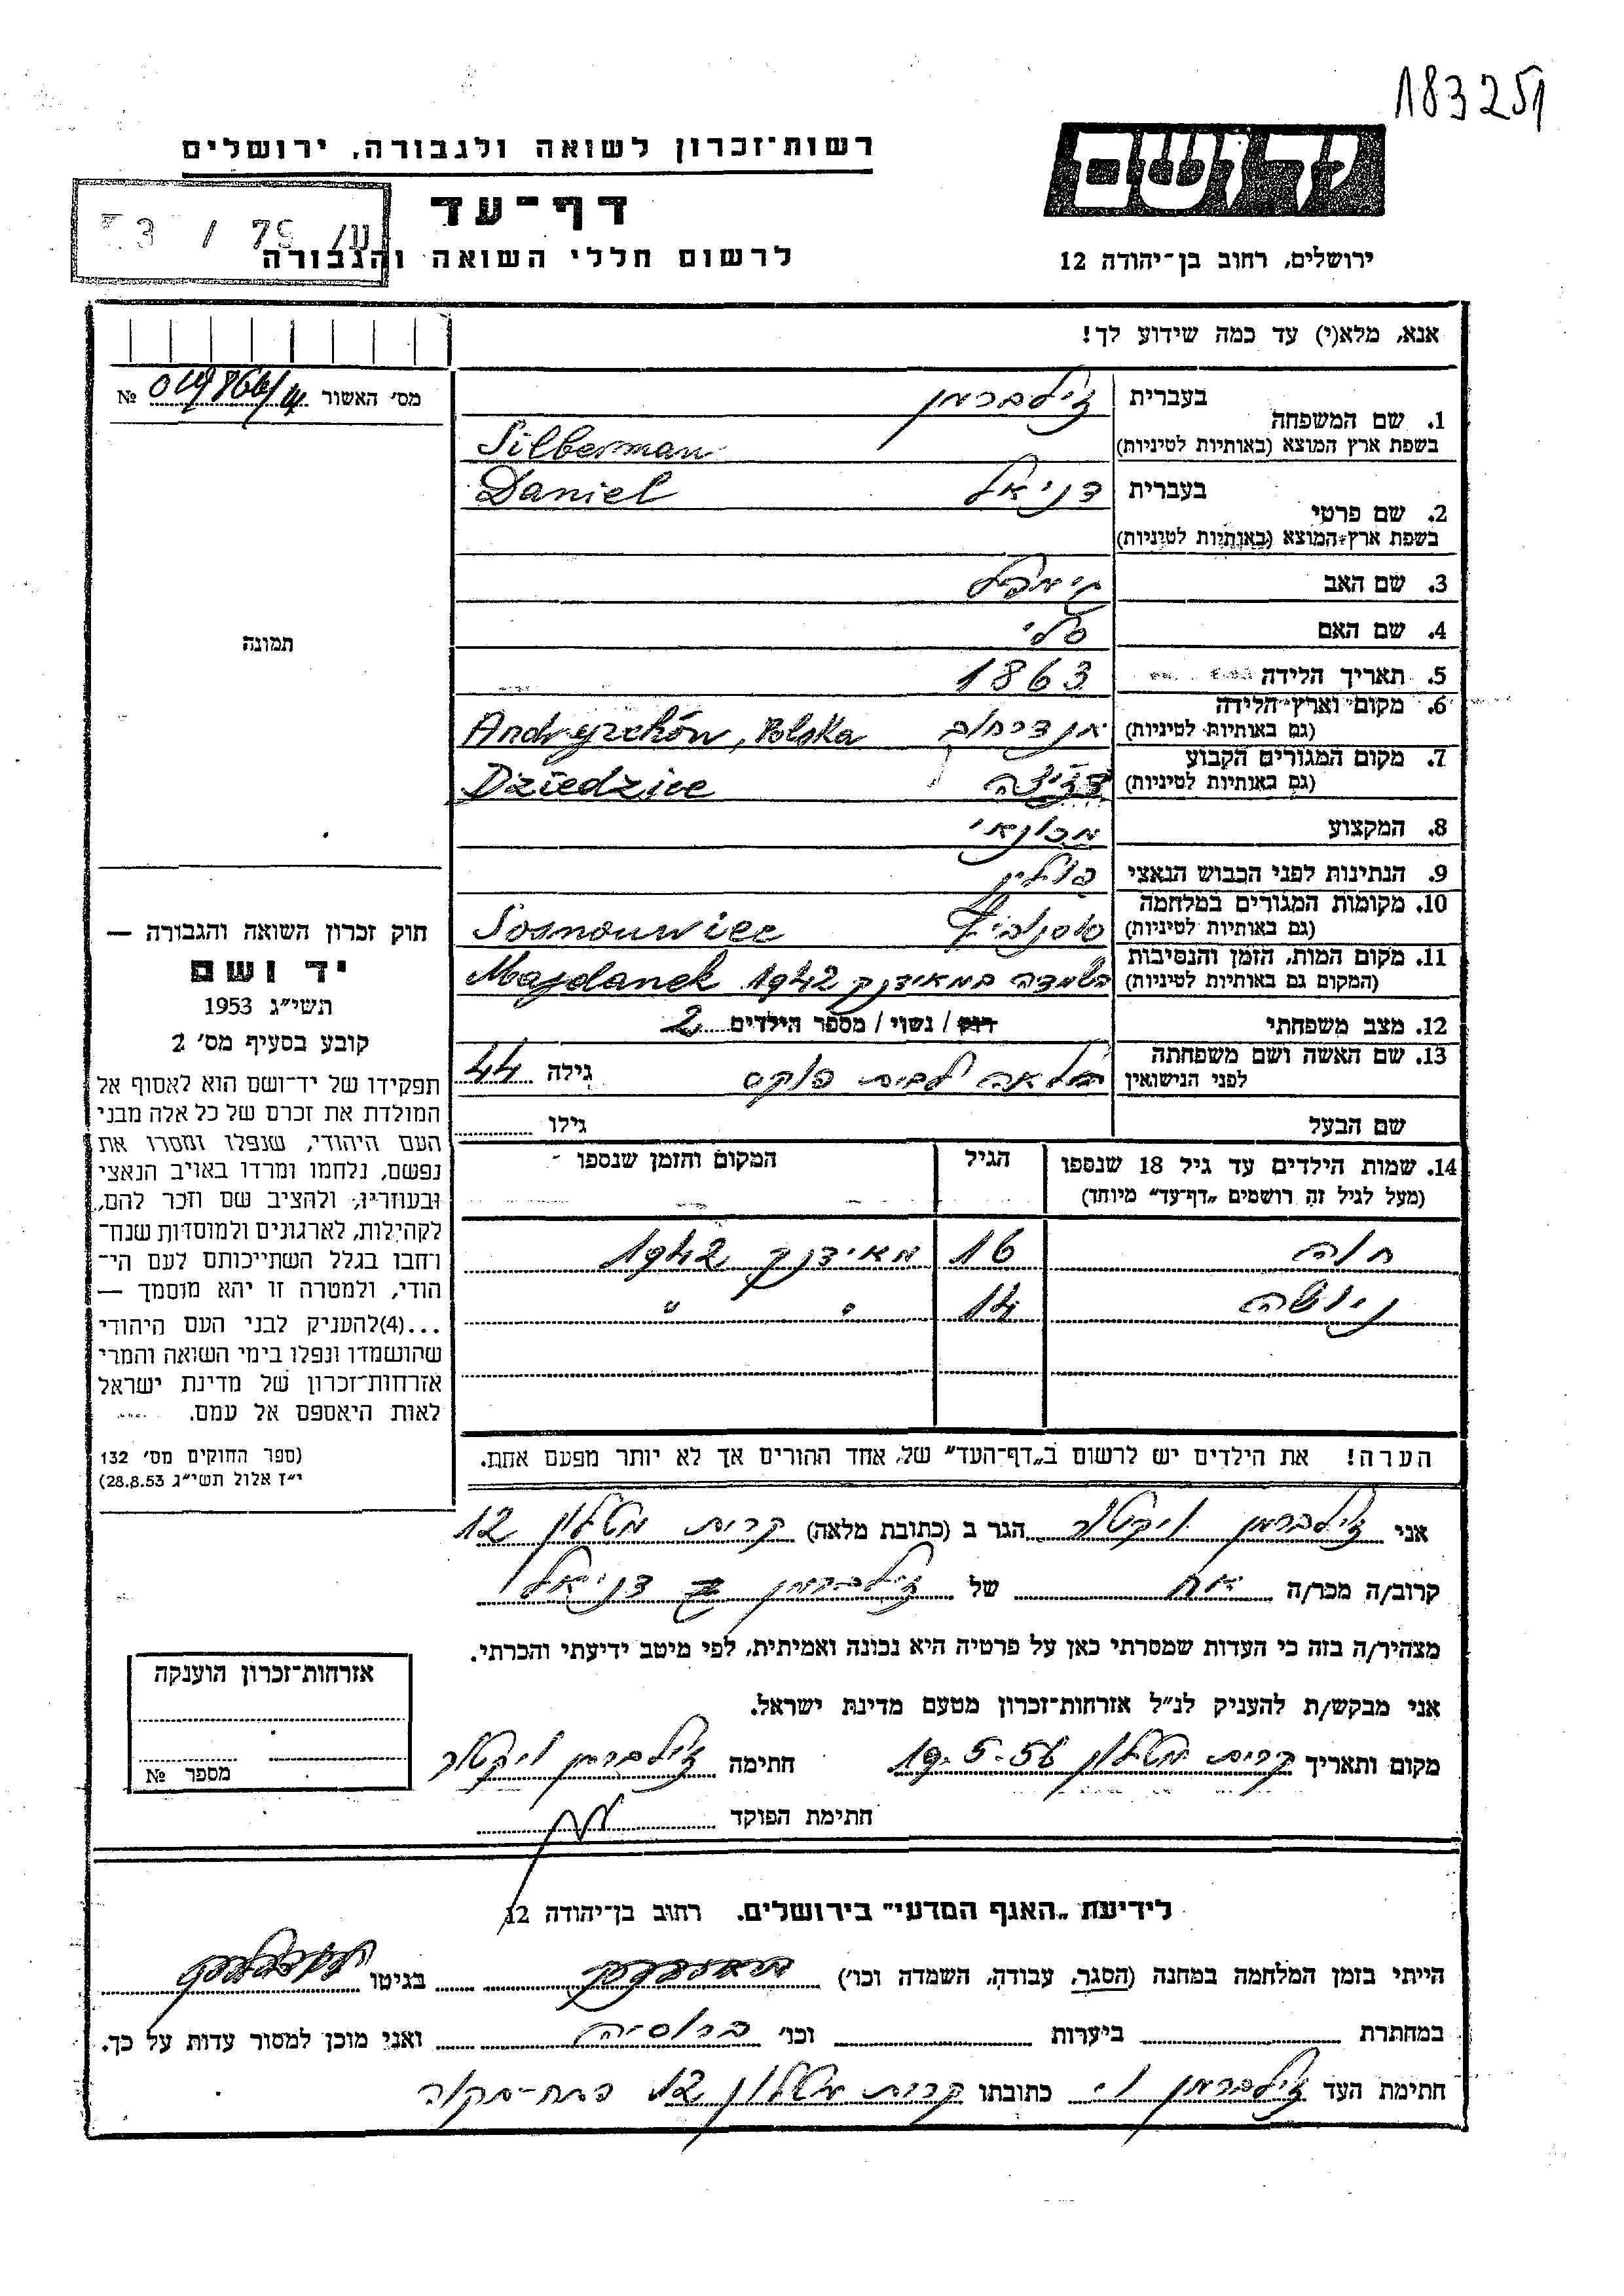 183251
יד ושם
רשות־זכרון לשואה ולגבורה, ירושלים
דף־עד
לרשום חללי השואה והגבורה
ירושלים, רחוב בן־יהודה 12
אנא, מלא(י) עד כמה שידוע לך!
מס' האשור №
1. שם המשפחה
בעברית זילברמן
בשפת ארץ המוצא (באותיות לטיניות) Silberman
2. שם פרטי
בעברית דניאל Daniel
בשפת ארץ־המוצא (באותיות לטיניות)
3. שם האב
4. שם האם
5. תאריך הלידה 1863
6. מקום וארץ הלידה
(גם באותיות לטיניות) אנדריחוב Andryzchów, Polska
7. מקום המגורים הקבוע
(גם באותיות לטיניות) Dziedzice
8. המקצוע מכונאי
9. הנתינות לפני הכבוש הנאצי פולין
10. מקומות המגורים במלחמה
(גם באותיות לטיניות) סוסנוביץ Sosnouwiec
11. מקום המות, הזמן והנסיבות
(המקום גם באותיות לטיניות) השמדה במאידנק 1942 Majdanek
12. מצב משפחתי רווק / נשוי / מספר הילדים 2
13. שם האשה ושם משפחתה
לפני הנישואין לבית פוקס גילה 44
שם הבעל גילו
14. שמות הילדים עד גיל 18 שנספו הגיל המקום והזמן שנספו
(מעל לגיל זה רושמים "דף־עד" מיוחד)
חוה 16 מאידנק 1942
ניושה 14 " "
הערה! את הילדים יש לרשום ב"דף־העד" של אחד ההורים אך לא יותר מפעם אחת.
תמונה
חוק זכרון השואה והגבורה —
יד ושם
תשי"ג 1953
קובע בסעיף מס' 2
תפקידו של יד־ושם הוא לאסוף אל
המולדת את זכרם של כל אלה מבני
העם היהודי, שנפלו ומסרו את
נפשם, נלחמו ומרדו באויב הנאצי
ובעוזריו, ולהציב שם וזכר להם,
לקהילות, לארגונים ולמוסדות שנח־
רחבו בגלל השתייכותם לעם הי־
הודי, ולמטרה זו יהא מוסמך —
...(4) להעניק לבני העם היהודי
שהושמדו ונפלו בימי השואה והמרי
אזרחות־זכרון של מדינת ישראל
לאות היאספם אל עמם.
(ספר החוקים מס' 132
י"ז אלול תשי"ג 28.8.53)
אני זילברמן ויקטור הגר ב (כתובת מלאה) קרית מטלון 12
קרוב/ה מכר/ה אח של זילברמן דניאל
מצהיר/ה בזה כי העדות שמסרתי כאן על פרטיה היא נכונה ואמיתית, לפי מיטב ידיעתי והכרתי.
אני מבקש/ת להעניק לנ"ל אזרחות־זכרון מטעם מדינת ישראל.
מקום ותאריך קרית מטלון 19.5.56 חתימה זילברמן ויקטור
חתימת הפוקד
אזרחות־זכרון הוענקה
מספר №
לידיעת "האגף המדעי" בירושלים. רחוב בן־יהודה 12
הייתי בזמן המלחמה במחנה (הסגר, עבודה, השמדה וכו') בגיטו
במחתרת ביערות וכו' ברוסיה ואני מוכן למסור עדות על כך.
חתימת העד זילברמן וי כתובתו קרית מטלון 12 פתח-תקוה